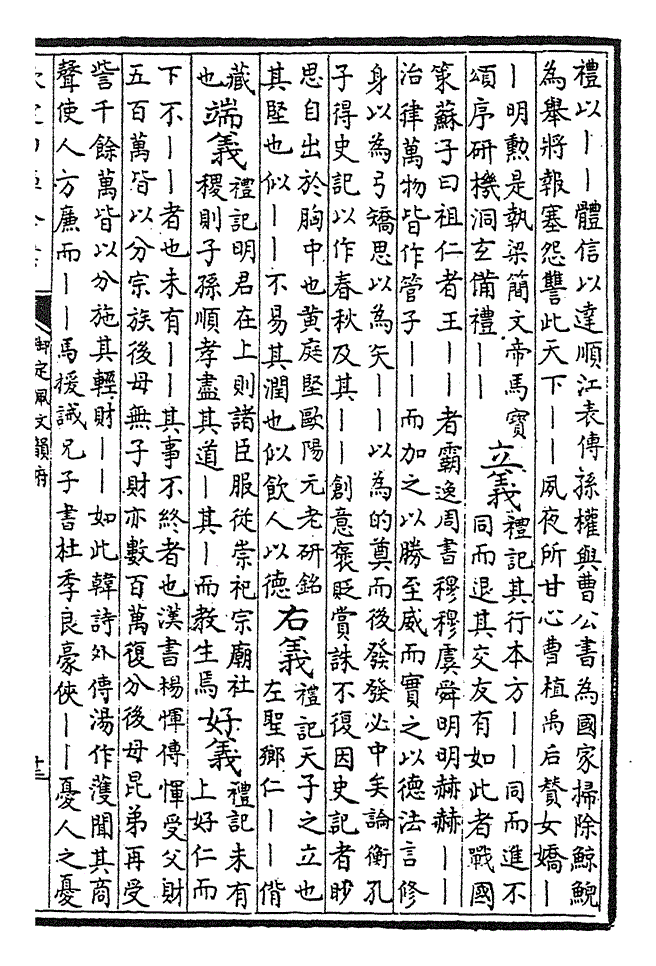 禮以丨丨體信以達順江表傳孫權與曹公書為國家掃除鯨鯢
為舉將報塞怨讐此天下丨丨夙夜所甘心曹植禹后賛女嬌丨
丨明勲是執梁簡文帝馬寶
頌序研機洞玄備禮丨丨
立義
禮記其行本方丨丨同而進不
同而退其交友有如此者戰國
策蘇子曰祖仁者王丨丨者霸逸周書穆穆虞舜明明赫赫丨丨
治律萬物皆作管子丨丨而加之以勝至威而實之以德法言修
身以為弓矯思以為矢丨丨以為的奠而後發發必中矣論衡孔
子得史記以作春秋及其丨丨創意褒貶賞誅不復因史記者眇
思自出於胸中也黄庭堅歐陽元老研銘
其堅也似丨丨不易其潤也似飲人以德
右義
禮記天子之立也
左聖鄉仁丨丨偝
藏
也
端義
禮記明君在上則諸臣服從崇祀宗廟社
稷則子孫順孝盡其道丨其丨而教生焉
好義
禮記未有
上好仁而
下不丨丨者也未有丨丨其事不終者也漢書楊惲傳惲受父財
五百萬皆以分宗族後母無子財亦數百萬復分後母昆弟再受
訾千餘萬皆以分施其輕財丨丨如此韓詩外傳湯作濩聞其商
聲使人方廉而丨丨馬援誡兄子書杜季良豪俠丨丨憂人之憂
御定佩文韻府